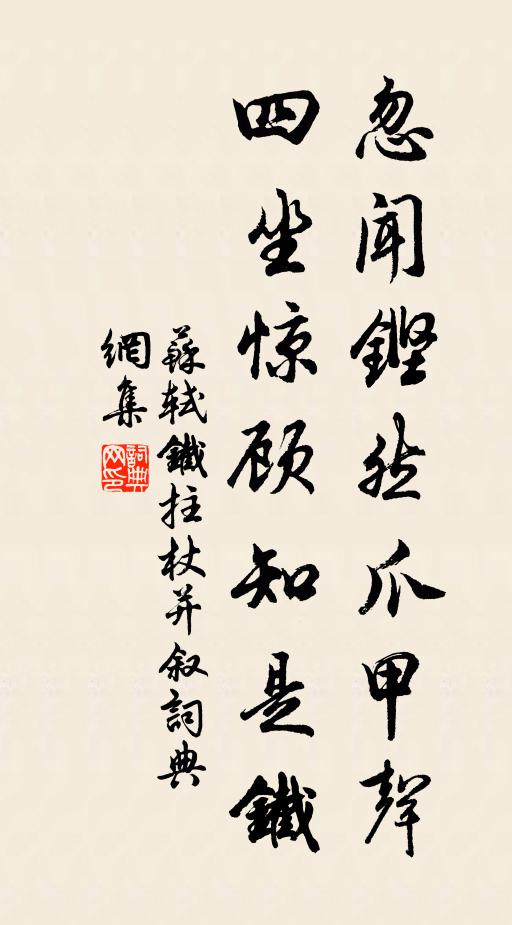 忽闻鏗然爪甲聲
四坐惊顾知是鐵
蘇軾鐵拄杖并叙詞典
網集
詞典网印